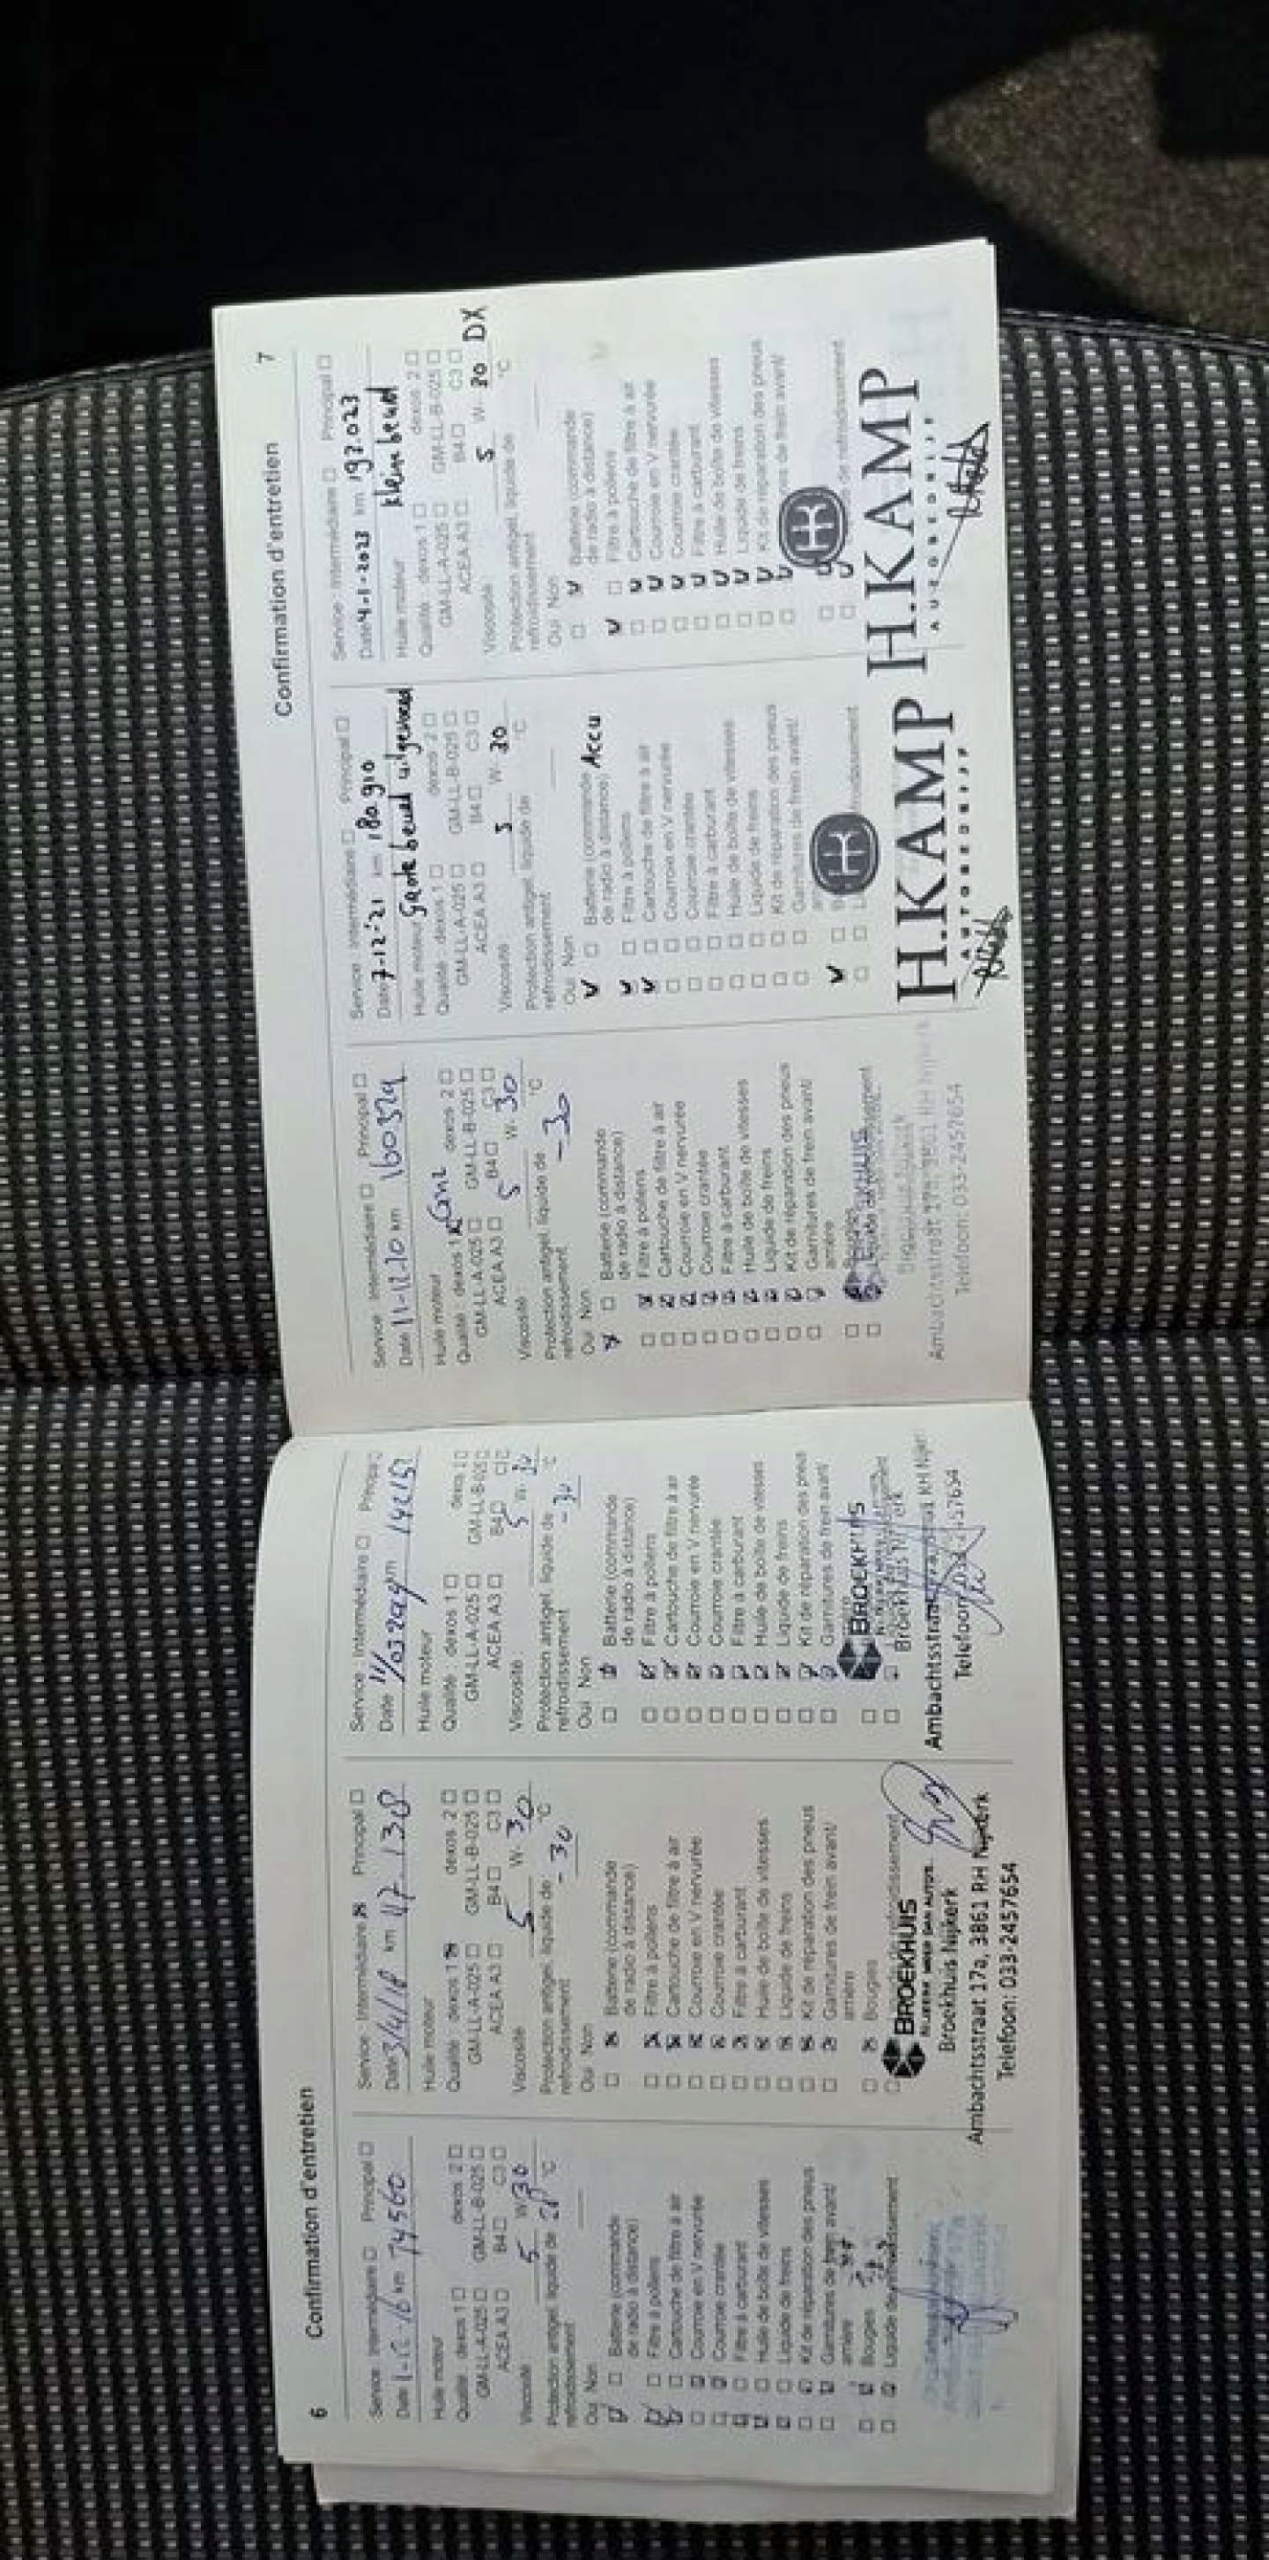 6 Confirmation d'entretien
Service: Intermédiaire Principal
Date km 74560
Huile moteur
Qualité: dexos 1 dexos 2
GM-LL-A-025 GM-LL-B-025
ACEA A3 B4 C3
Viscosité 5 W- 30
Protection antigel, liquide de °C
refroidissement
Oui Non
Batterie (commande
de radio à distance)
Filtre à pollens
Cartouche de filtre à air
Courroie en V nervurée
Courroie crantée
Filtre à carburant
Huile de boîte de vitesses
Liquide de freins
Kit de réparation des pneus
Garnitures de frein avant/
arrière
Bougies
Liquide de refroidissement
Service: Intermédiaire Principal
Date 3/4/18 km 117138
Huile moteur
Qualité: dexos 1 dexos 2
GM-LL-A-025 GM-LL-B-025
ACEA A3 B4 C3
Viscosité 5 W- 30
Protection antigel, liquide de °C
refroidissement -30
Oui Non
Batterie (commande
de radio à distance)
Filtre à pollens
Cartouche de filtre à air
Courroie en V nervurée
Courroie crantée
Filtre à carburant
Huile de boîte de vitesses
Liquide de freins
Kit de réparation des pneus
Garnitures de frein avant/
arrière
Bougies
refroidissement
BROEKHUIS
Broekhuis Nijkerk
Ambachtsstraat 17a, 3861 RH Nijkerk
Telefoon: 033-2457654
Service: Intermédiaire Principal
Date km
Huile moteur
Qualité: dexos 1 dexos 2
GM-LL-A-025 GM-LL-B-025
ACEA A3 B4
Viscosité 5 W- 30
Protection antigel, liquide de °C
refroidissement -30
Oui Non
Batterie (commande
de radio à distance)
Filtre à pollens
Cartouche de filtre à air
Courroie en V nervurée
Courroie crantée
Filtre à carburant
Huile de boîte de vitesses
Liquide de freins
Kit de réparation des pneus
Garnitures de frein avant/
BROEKHUIS
Telefoon
Confirmation d'entretien 7
Service: Intermédiaire Principal
Date 11-12-20 km 160529
Huile moteur
Qualité: dexos 1 dexos 2
GM-LL-A-025 GM-LL-B-025
ACEA A3 B4 C3
Viscosité 5 W- 30
Protection antigel, liquide de °C
refroidissement -30
Oui Non
Batterie (commande
de radio à distance)
Filtre à pollens
Cartouche de filtre à air
Courroie en V nervurée
Courroie crantée
Filtre à carburant
Huile de boîte de vitesses
Liquide de freins
Kit de réparation des pneus
Garnitures de frein avant/
arrière
Telefoon: 033-2457654
Service: Intermédiaire Principal
Date 7-12-'21 km 180.910
Huile moteur Grote beurt uitgevoerd
Qualité: dexos 1 dexos 2
GM-LL-A-025 GM-LL-B-025
ACEA A3 B4 C3
Viscosité 5 W- 30
Protection antigel, liquide de °C
refroidissement
Oui Non
Batterie (commande
de radio à distance) Accu
Filtre à pollens
Cartouche de filtre à air
Courroie en V nervurée
Courroie crantée
Filtre à carburant
Huile de boîte de vitesses
Liquide de freins
Kit de réparation des pneus
Garnitures de frein avant/
HK
H.KAMP
AUTOBEDRIJF
Service: Intermédiaire Principal
Date 4-1-2023 km 197.023
Huile moteur kleine beurt
Qualité: dexos 1 dexos 2
GM-LL-A-025 GM-LL-B-025
ACEA A3 B4 C3
Viscosité 5 W- 30 DX
Protection antigel, liquide de °C
refroidissement
Oui Non
Batterie (commande
de radio à distance)
Filtre à pollens
Cartouche de filtre à air
Courroie en V nervurée
Courroie crantée
Filtre à carburant
Huile de boîte de vitesses
Liquide de freins
Kit de réparation des pneus
de frein avant/
de refroidissement
HK
H.KAMP